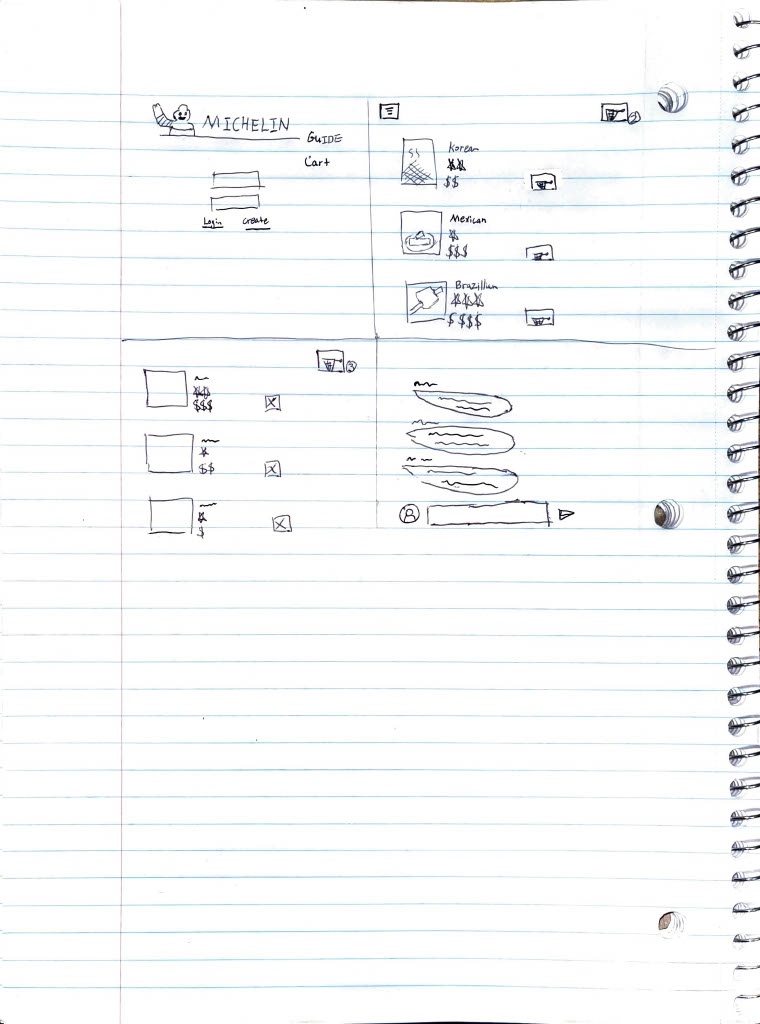 MICHELIN
GUIDE
Cart
Login create
Korean
$$
Mexican
$$$
Brazillian
$$$$
$$$
$$
$